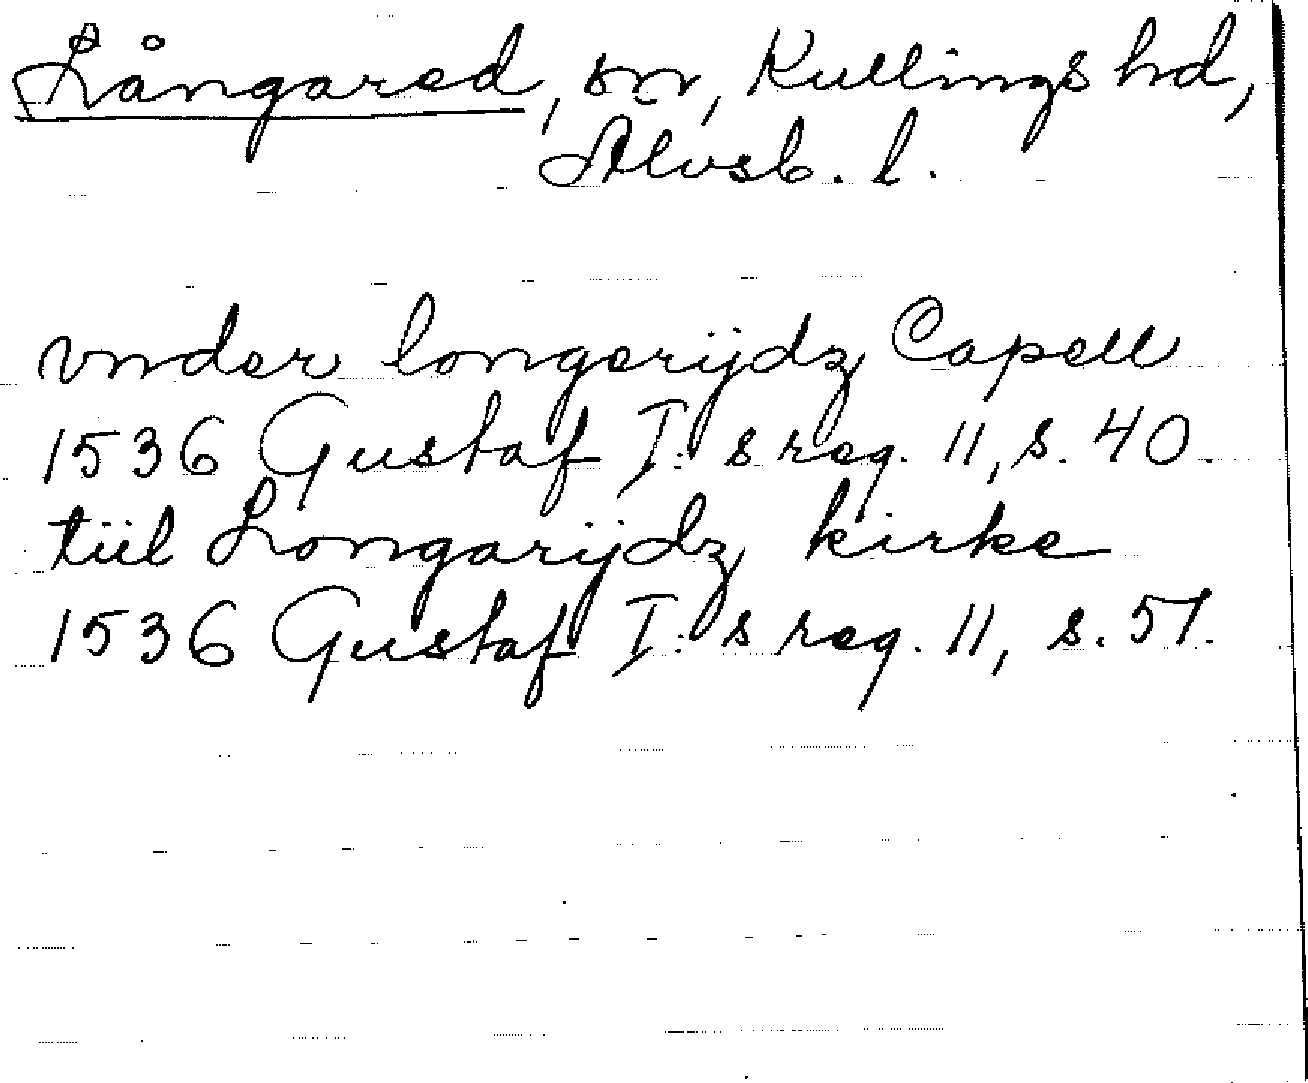 Långared, sn, Kullings hd,
Älvsb. l.
vnder longerijdz Capell
1536 Gustaf I:s reg. 11, s. 40.
tiil Longarijdz kirke
1536 Gustaf I:s reg. 11, s. 51.